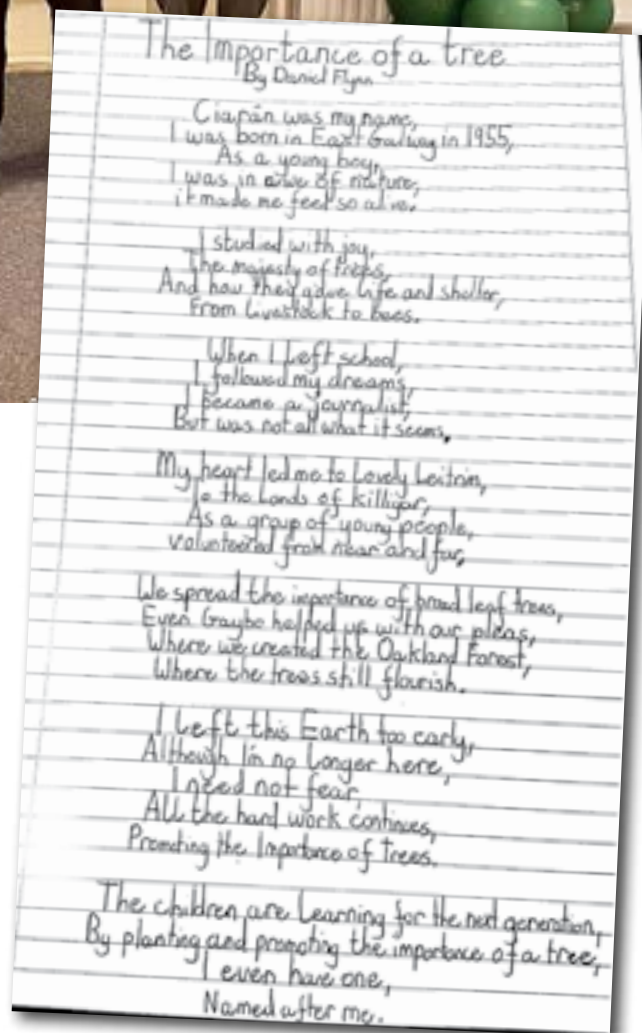 The Importance of a tree
By Daniel Flynn
Ciarán was my name,
I was born in East Galway in 1955,
As a young boy,
I was in awe of nature,
it made me feel so alive.
I studied with joy,
The majesty of trees,
And how they gave life and shelter,
From Livestock to bees.
When I Left school,
I followed my dreams,
I became a journalist,
But was not all what it seems.
My heart led me to Lovely Leitrim,
To the Lands of Killigar,
As a group of young people,
volunteered from near and far,
We spread the importance of broad leaf trees,
Even Gaybo helped us with our pleas,
Where we created the Oakland Forest,
Where the trees still flourish.
I Left this Earth too early,
Although I'm no Longer here,
I need not fear,
All the hard work continues,
Promoting the Importance of Trees.
The children are Learning for the next generation,
By planting and promoting the importance of a tree,
I even have one,
Named after me.